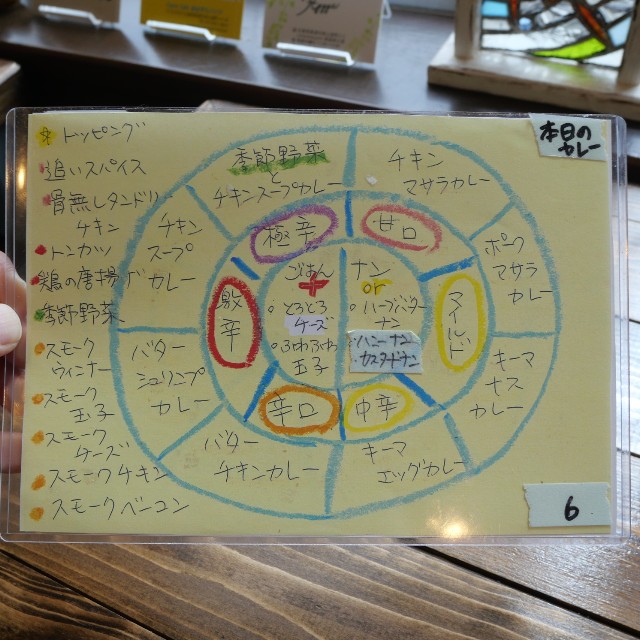 トッピング
追いスパイス
骨無しタンドリ
チキン
トンカツ
鶏の唐揚げ
季節野菜
スモーク
ウィンナー
スモーク
玉子
スモーク
チーズ
スモークチキン
スモークベーコン
本日の
カレー
季節野菜
と
チキンスープカレー
チキン
マサラカレー
ポーク
マサラ
カレー
キーマ
ナス
カレー
キーマ
エッグカレー
バター
チキンカレー
バター
シュリンプ
カレー
チキン
スープ
カレー
極辛
甘口
マイルド
中辛
辛口
激辛
ごはん
+
とろとろ
チーズ
ふわふわ
玉子
ナン
or
ハーブバター
ナン
ハニーナン
カスタードナン
6